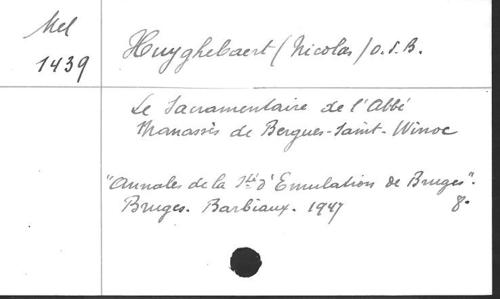 Mel
1439
Huyghebaert (Nicolas) O.S.B.
Le Sacramentaire de l'Abbé
Manassès de Bergues-Saint-Winoc
"Annales de la Sté d'Emulation de Bruges".
Bruges. Barbiaux. 1947 8°